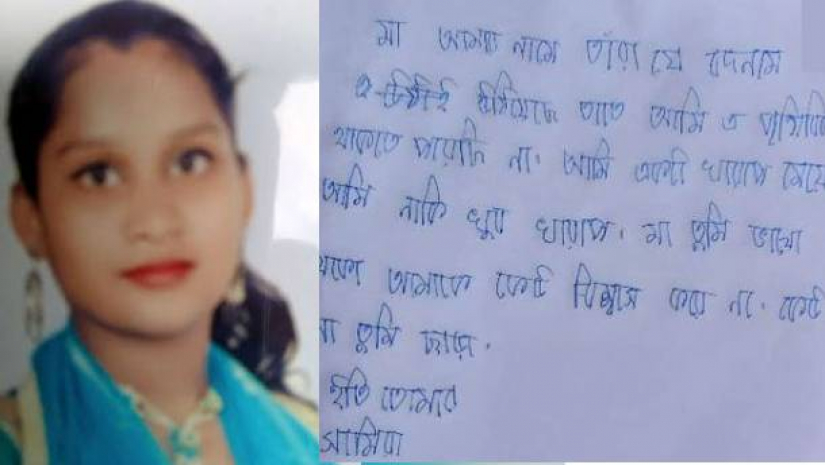 মা আমার নামে তাঁরা যে বদনাম
তাতে আমি এ পৃথিবি
থাকতে পারছি না। আমি একটা খারাপ মেয়ে
আমি নাকি খুব খারাপ। মা তুমি ভালো
থেকো আমাকে কেউ বিশ্বাস করে না। কেউ
না তুমি ছাড়া।
ইতি তোমার
সামিরা